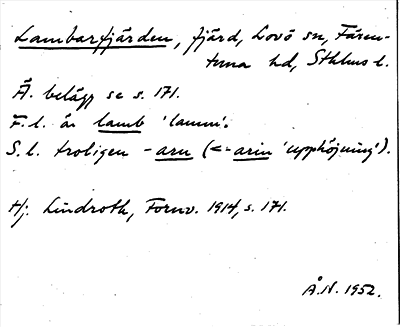 Lambarfjärden, fjärd, Lovö sn, Fären-
tuna hd, Sthlms l.
Ä. belägg se s. 171.
F.l. är lamb 'lamm'.
S.l. troligen -aru (<-arin 'upphöjning').
Hj. Lindroth, Fornv. 1914, s. 171.
Å.N. 1952.